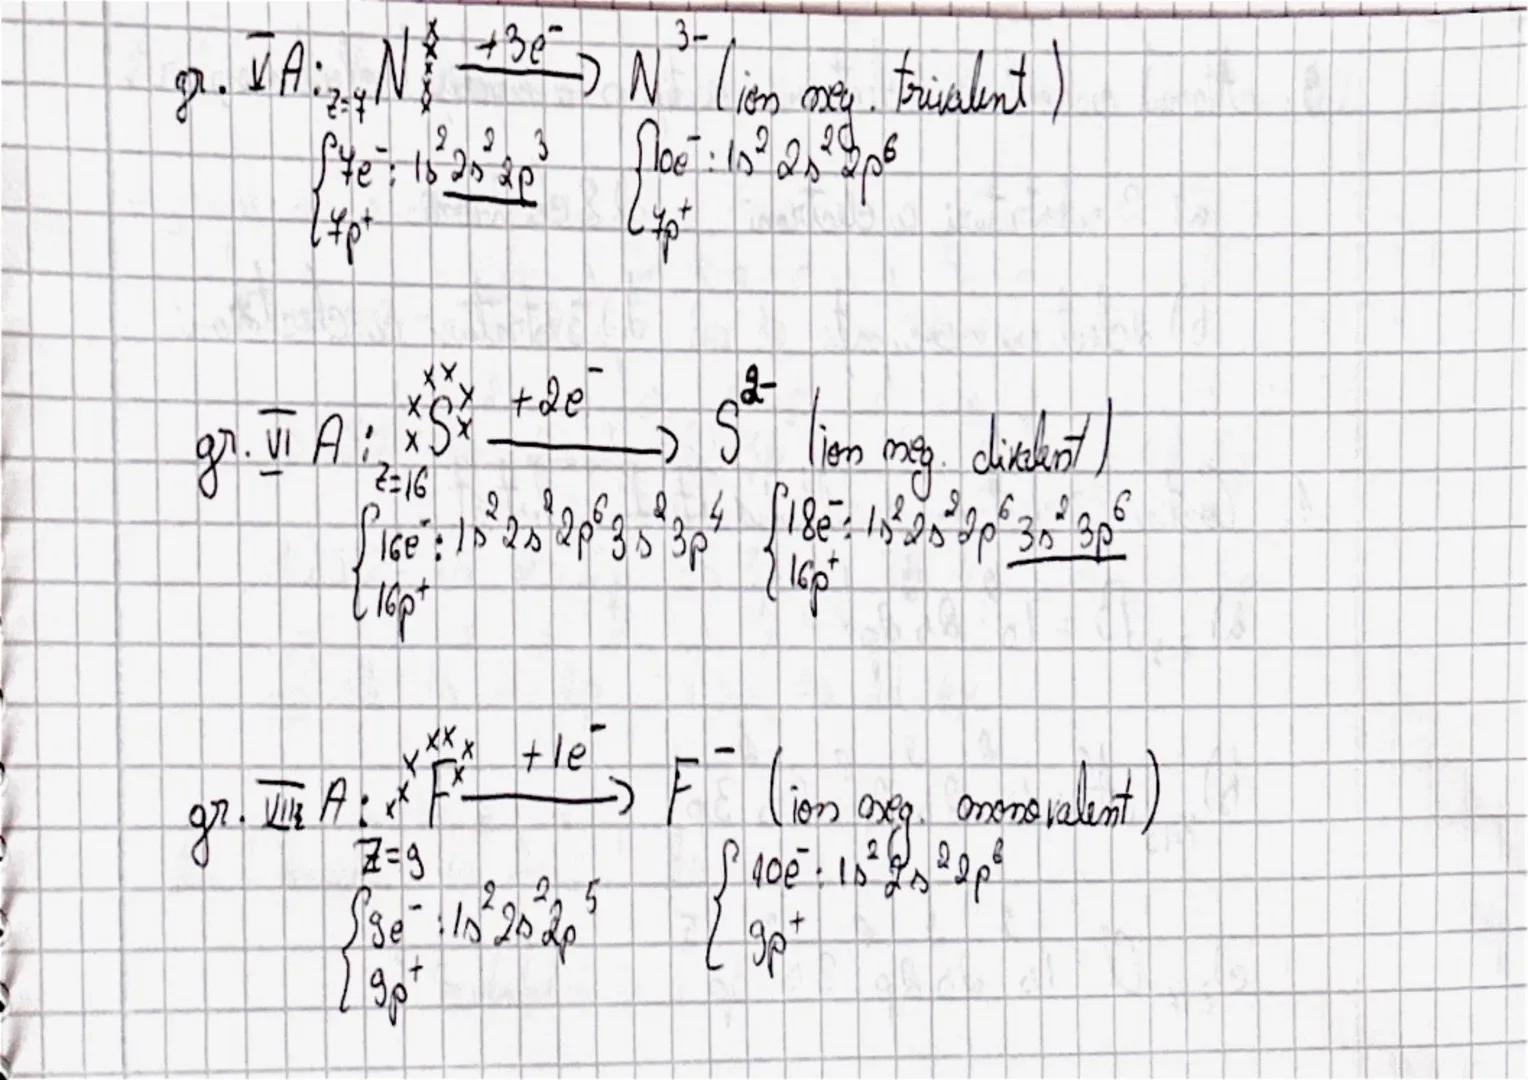 gr. V A: N +3e⁻ → N³⁻ (ion neg. trivalent)
z=7
7e⁻: 1s² 2s² 2p³ 10e⁻: 1s² 2s² 2p⁶
7p⁺ 7p⁺
gr. VI A: S +2e⁻ → S²⁻ (ion neg. divalent)
z=16
16e⁻: 1s² 2s² 2p⁶ 3s² 3p⁴ 18e⁻: 1s² 2s² 2p⁶ 3s² 3p⁶
16p⁺ 16p⁺
gr. A: F +1e⁻ → F⁻ (ion neg. monovalent)
Z=9
9e⁻: 1s² 2s² 2p⁵ 10e⁻: 1s² 2s² 2p⁶
9p⁺ 9p⁺